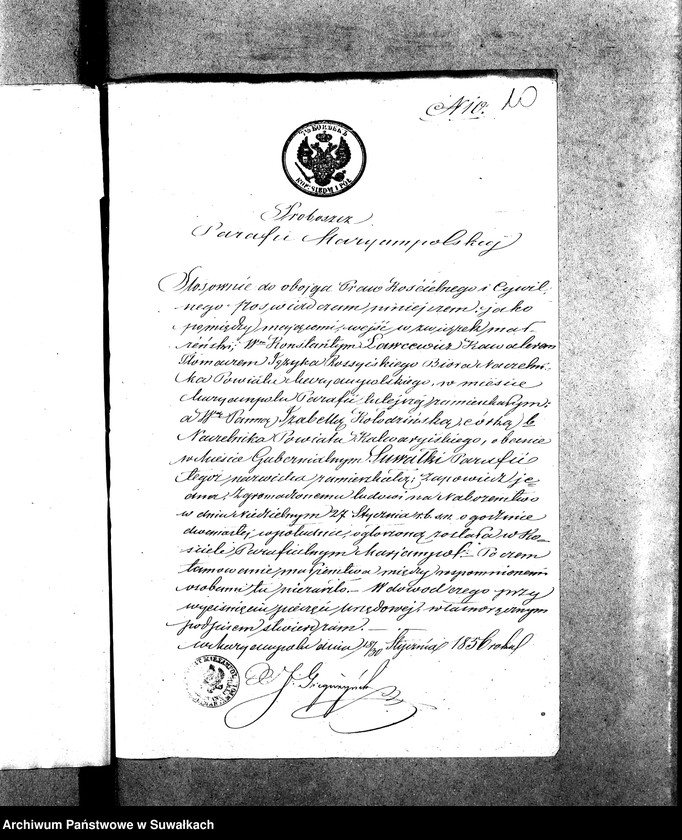 N 10. 10
7½ КОПѢЕКЪ
KOP: SIEDM I PÓŁ
Proboszcz
Parafii Maryampolskiej
Stosownie do obojga Praw Kościelnego i Cywil-
nego poświadczam niniejszem: jako
pomiędzy mającemi wejść w związek mał-
żeński; Wm Konstantym Ławcewicz Kawalerem
Tłomaczem Języka Rossyiskiego Biura Naczelni-
ka Powiatu Maryampolskiego, w mieście
Maryampolu Parafii tutejszej zamieszkałym:
a Wą Panną Izabellą Kołodzińską, córką b
Naczelnika Powiatu Kalwaryiskiego, obecnie
w Mieście Gubernialnym Suwałki Parafii
tegoż nazwiska zamieszkałą; zapowiedź je-
dna, zgromadzonemu ludowi na Nabożeństwo
w dniu Niedzielnym 27 Stycznia r. b. o godzinie
dwunastej w południe, ogłoszoną została w Ko-
ściele Parafialnym Marjampol: Poczem
tamowanie małżeństwa między wspomnionemi
osobami tu niezaszło. W dowod czego przy
wyciśnięciu pieczęci urzędowej własnoręcznym
podpisem stwierdzam.
w Maryampolu dnia 18/30 Stycznia 1856 roku
X J.
Archiwum Państwowe w Suwałkach